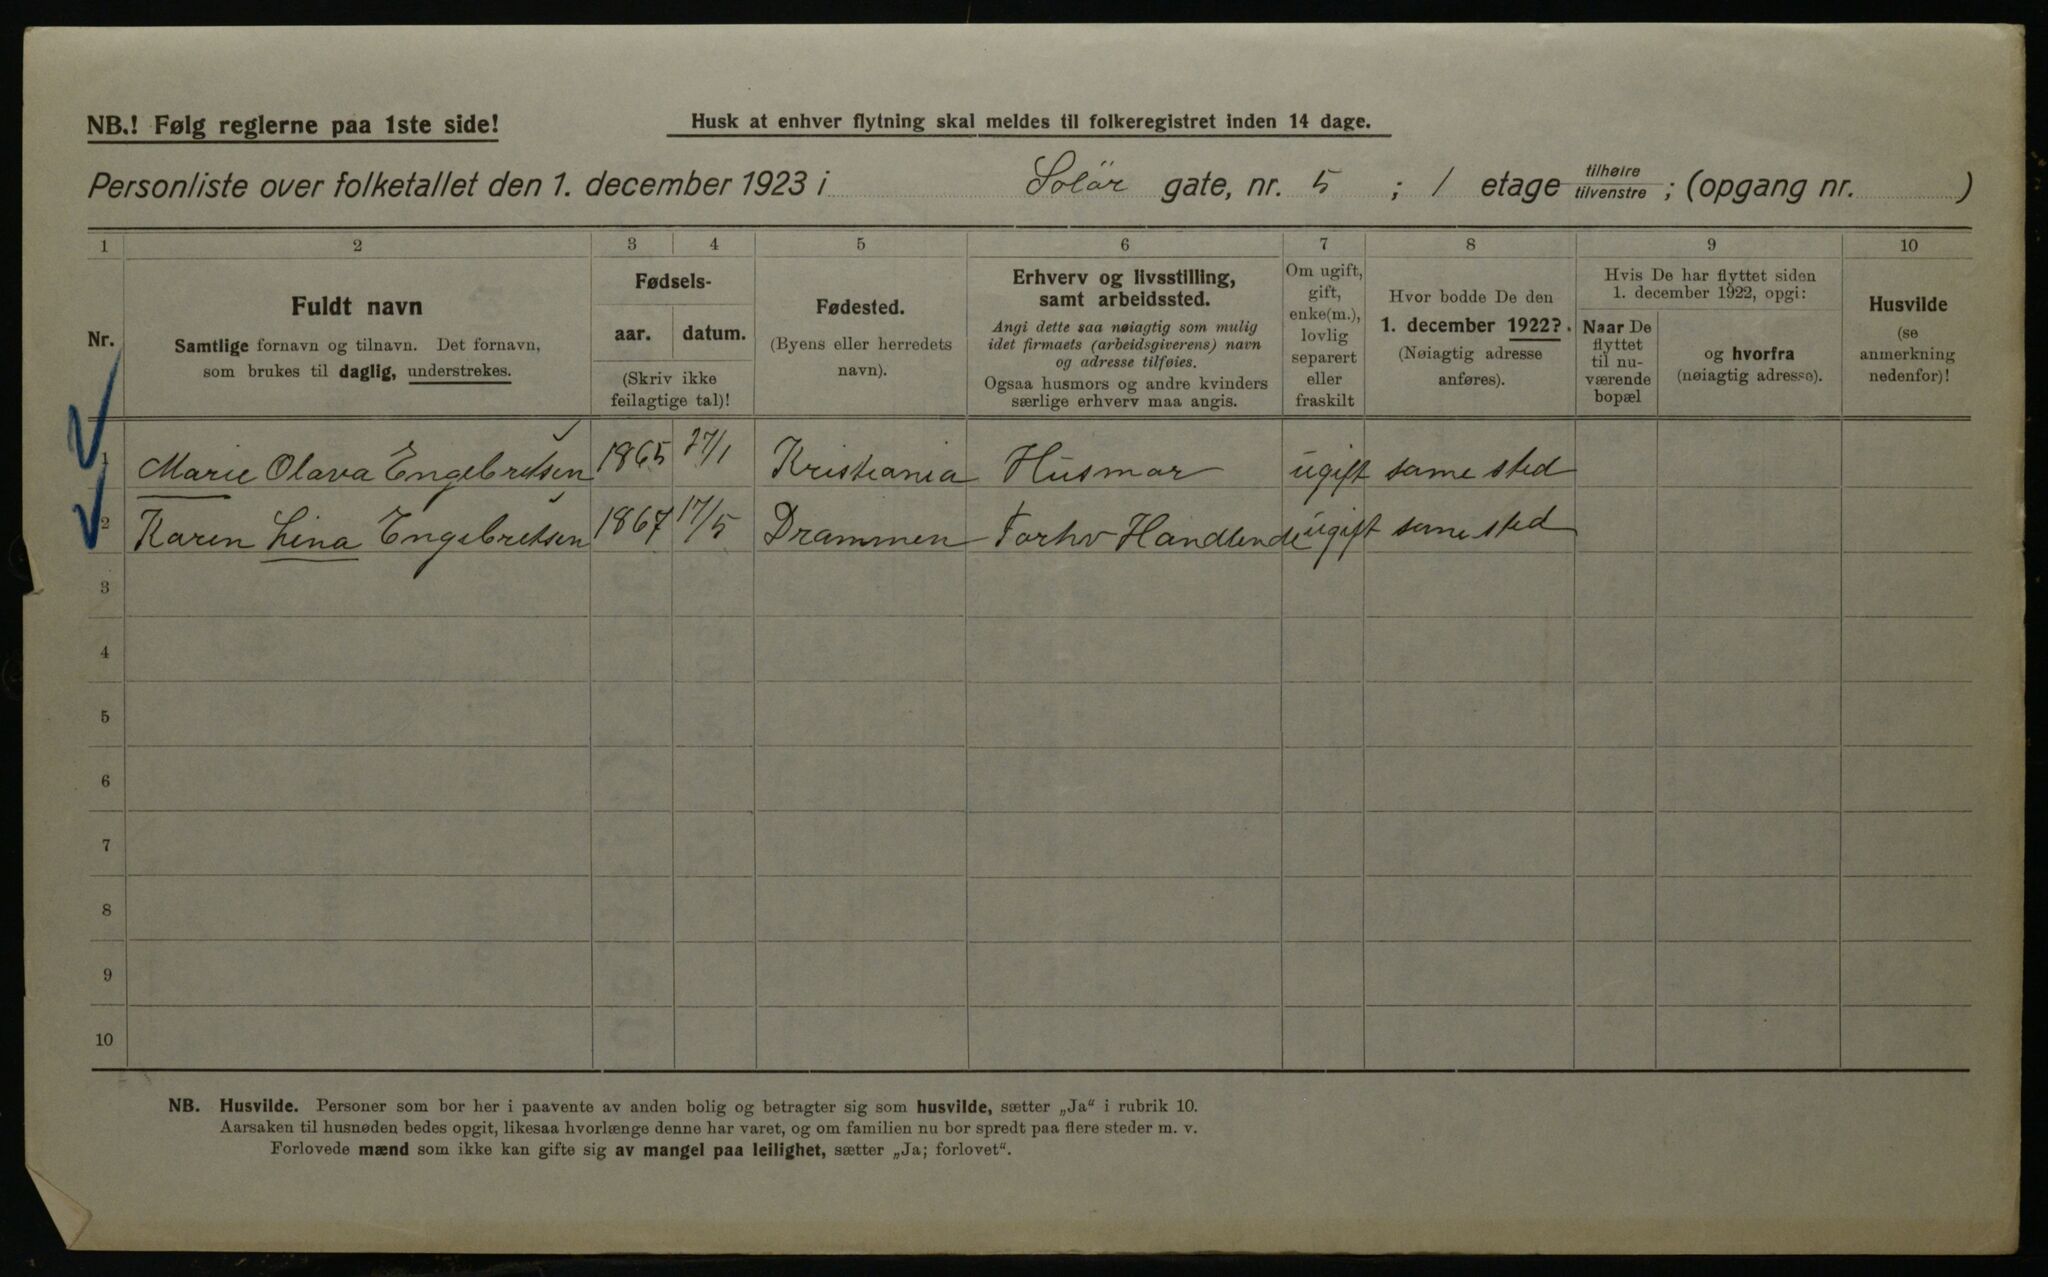 NB.! Følg reglerne paa 1ste side!
Husk at enhver flytning skal meldes til folkeregistret inden 14 dage.
Personliste over folketallet den 1. december 1923 i Solör gate, nr. 5 ; 1 etage tilhøire tilvenstre ; (opgang nr. )
1 2 3 4 5 6 7 8 9 10
Nr.
Fuldt navn
Samtlige fornavn og tilnavn. Det fornavn,
som brukes til daglig, understrekes.
Fødsels-
aar. datum.
(Skriv ikke
feilagtige tal)!
Fødested.
(Byens eller herredets
navn).
Erhverv og livsstilling,
samt arbeidssted.
Angi dette saa nøiagtig som mulig
idet firmaets (arbeidsgiverens) navn
og adresse tilføies.
Ogsaa husmors og andre kvinders
særlige erhverv maa angis.
Om ugift,
gift,
enke(m.),
lovlig
separert
eller
fraskilt
Hvor bodde De den
1. december 1922?.
(Nøiagtig adresse
anføres).
Hvis De har flyttet siden
1. december 1922, opgi:
Naar De
flyttet
til nu-
værende
bopæl
og hvorfra
(nøiagtig adresse).
Husvilde
(se
anmerkning
nedenfor)!
1 Marie Olava Engebretsen 1865 27/1 Kristiania Husmor ugift same sted
2 Karen Lina Engebretsen 1867 17/5 Drammen Forhv Handlende ugift same sted
3
4
5
6
7
8
9
10
NB. Husvilde. Personer som bor her i paavente av anden bolig og betragter sig som husvilde, sætter „Ja“ i rubrik 10.
Aarsaken til husnøden bedes opgit, likesaa hvorlænge denne har varet, og om familien nu bor spredt paa flere steder m. v.
Forlovede mænd som ikke kan gifte sig av mangel paa leilighet, sætter „Ja; forlovet“.